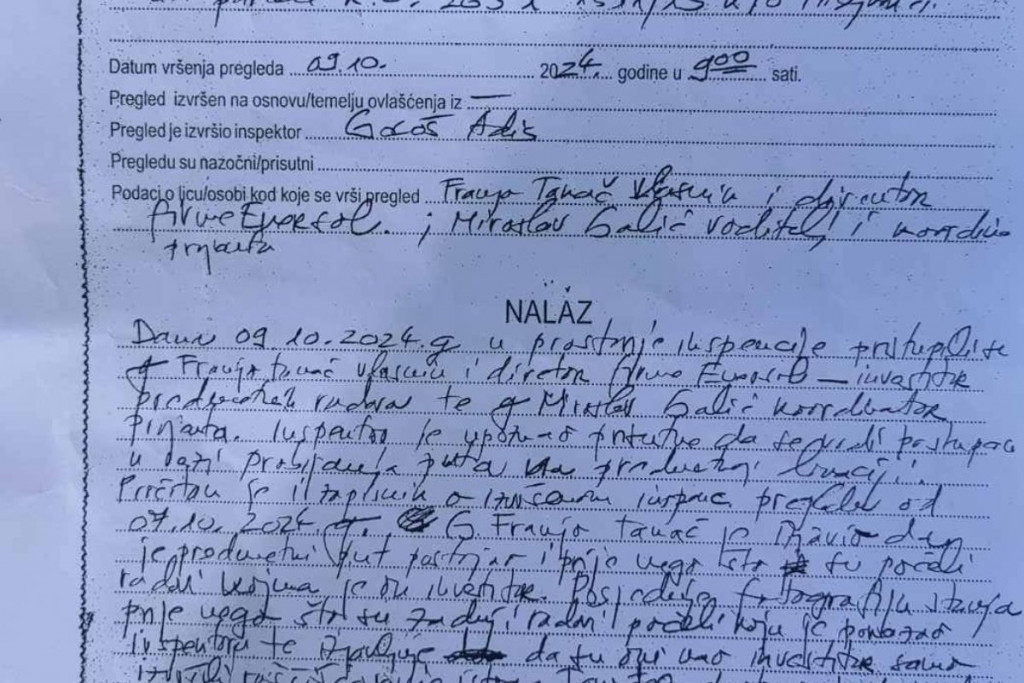 Datum vršenja pregleda 09.10. 2024. godine u 9⁰⁰ sati.
Pregled izvršen na osnovu/temelju ovlašćenja iz —
Pregled je izvršio inspektor Gološ Adis
Pregledu su nazočni/prisutni
Podaci o licu/osobi kod koje se vrši pregled Franjo Tanač vlasnik i director
firme Enersol. ; Miroslav Galić voditelj i
projekta
NALAZ
Dana 09.10.2024.g u prostorije inspekcije pristupili su
g Franjo Tanač vlasnik i director firme Enersol — investitor
predmetnih radova te g Miroslav Galić koordinator
projekta. Inspektor je upoznao prisutne da se vodi postupak
u vezi probijanja puta na predmetnoj lokaciji.
Pročitan je i zapisnik o izvršenom inspekc pregledu od
07.10.2024.g. G. Franjo Tanač je izjavio da
je predmetni put postojao i prije nego što su počeli
radovi kojima je on investitor. Posjeduje fotografiju stanja
prije nego što su radovi počeli koju je pokazao
inspektoru te izjavljuje da su oni kao investitor samo